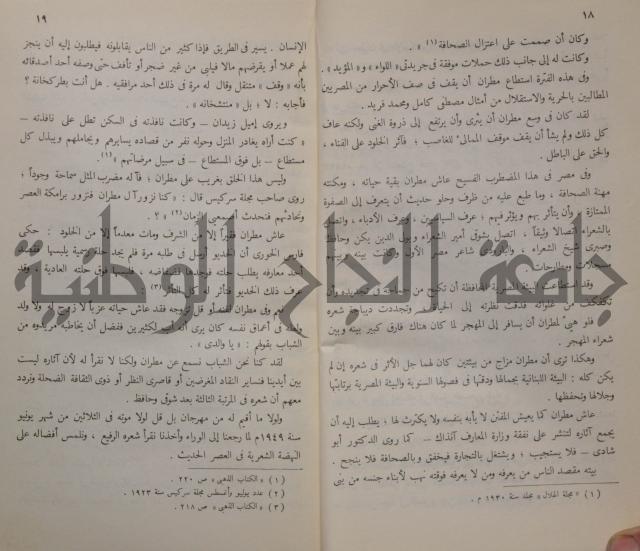 ١٨
وكان أن صممت على اعتزال الصحافة (١) » .
وكانت له إلى جانب ذلك حملات موفقة فى جريدتى « اللواء » و « المؤيد » .
وفى هذه الفترة استطاع مطران أن يقف فى صف الأحرار من المصريين
المطالبين بالحرية والاستقلال من أمثال مصطفى كامل ومحمد فريد .
لقد كان فى وسع مطران أن يثرى وأن يرتفع إلى ذروة الغنى ولكنه عاف
كل ذلك ولم يشأ أن يقف موقف الممالئ للغاصب ؛ فآثر الخلود على الفناء ،
والحق على الباطل .
وفى مصر فى هذا المضطرب الفسيح عاش مطران بقية حياته ، ومكنته
مهنة الصحافة ، وما طبع عليه من ظرف وحلو حديث أن يتعرف إلى الصفوة
الممتازة وأن يتأثر بهم ويؤثر فيهم ؛ عرف وعرف الأدباء ،
بالشعراء اتصالا وثيقاً ، اتصل بشوقى أمير الشعراء وولى الدين يكن وحافظ
وصبرى شيخ الشعراء ، شاعر مصر بينه وبينهم
مساجلات
وقد البيئة المصرية المحافظة أن تكبح من جماحه فى تجديده وأن
من غلوائه فدقت نظرته إلى وتجددت ديباجة شعره
فلو هيئ لمطران أن يسافر إلى المهجر لما كان هناك فارق كبير بينه وبين
شعراء المهجر .
وهكذا ترى أن مطران مزاج من بيئتين كان لهما جل الأثر فى شعره إن لم
يكن كله : البيئة اللبنانية بجمالها ودقتها فى فصولها السنوية والبيئة المصرية برتابتها
وجلالها وتحفظها .
عاش مطران كما يعيش المفنّن لا يأبه بنفسه ولا يكترث لها ؛ يطلب إليه أن
يجمع آثاره لتنشر على نفقة وزارة المعارف آنذاك – كما روى الدكتور أبو
شادى – فلا يستجيب ؛ ويشتغل بالتجارة فيخفق وبالصحافة فلا ينجح .
بيته مقصد الناس من يعرفه ومن لا يعرفه فوقته نهب لأبناء جنسه من بنى
(١) « مجلة الهلال » مجلد سنة ١٩٣٠ م .
١٩
الإنسان . يسير فى الطريق فإذا كثير من الناس يقابلونه فيطلبون إليه أن ينجز
لهم عملا أو يقرضهم مالا فيلبى من غير ضجر أو تأفف حتى وصفه أحد أصدقائه
بأنه « وقف » متنقل وقال له مرة فى ذلك أحد مرافقيه . هل أنت بطركخانة ؟
فأجابه : لا ؛ بل « متشخانه » .
ويروى إميل زيدان – وكانت نافذته فى السكن تطل على نافذته –
« كنت أراه يغادر المنزل وحوله نفر من قصاده يسايرهم ويجاملهم ويبذل كل
مستطاع – بل فوق المستطاع – فى سبيل مرضاتهم » (١)
وليس هذا الخلق بغريب على مطران ؛ فآله مضرب المثل سماحة وجوداً ؛
روى صاحب مجلة سركيس قال : « كنا نزور آل مطران فنزور برامكة العصر
ونحادثهم فنحدث أصمعى الزمان (٢) » ؟
عاش مطران فقيراً إلا من الشرف ومات معدماً إلا من الخلود : حكى
فارس الخورى أن الخديو أرسل فى طلبه مرة فلم يجد حلة رسمية يلبسها
أحد معارفه يطلب حلته فوجدها فلبسها فوق حلته العادية ، وقد
عرف ذلك الخديو فتأثر له كل التأثر (٣)
وفى مطران لفنه أو قل تزوجه فقد عاش حياته عزباً لا زوج له ولا ولد
فى أعماق نفسه كان يرى أنه أب لكثيرين ففضل أن يخاطبه مريدوه من
الشباب بقولهم : « يا والدى » .
لقد كنا نحن الشباب نسمع عن مطران ولكنا لا نقرأ له لأن آثاره ليست
بين أيدينا فنساير النقاد المغرضين أو قاصرى النظر أو ذوى الثقافة الضحلة ونردد
معهم أن شعره فى المرتبة الثالثة بعد شوقى وحافظ .
ولولا ما أقيم له من مهرجان بل قل لولا موته فى الثلاثين من شهر يونيو
سنة ١٩٤٩م لما رجعنا إلى الوراء وأخذنا نقرأ شعره الرفيع ، ونلمس أفضاله على
النهضة الشعرية فى العصر الحديث .
(١) « الكتاب الذهبى » ص ٢٢٠ .
(٢) عدد يوليو وأغسطس مجلة سركيس سنة ١٩٢٣ .
(٣) « الكتاب الذهبى » ص ٢١٨ .
جامعة النجاح الوطنية